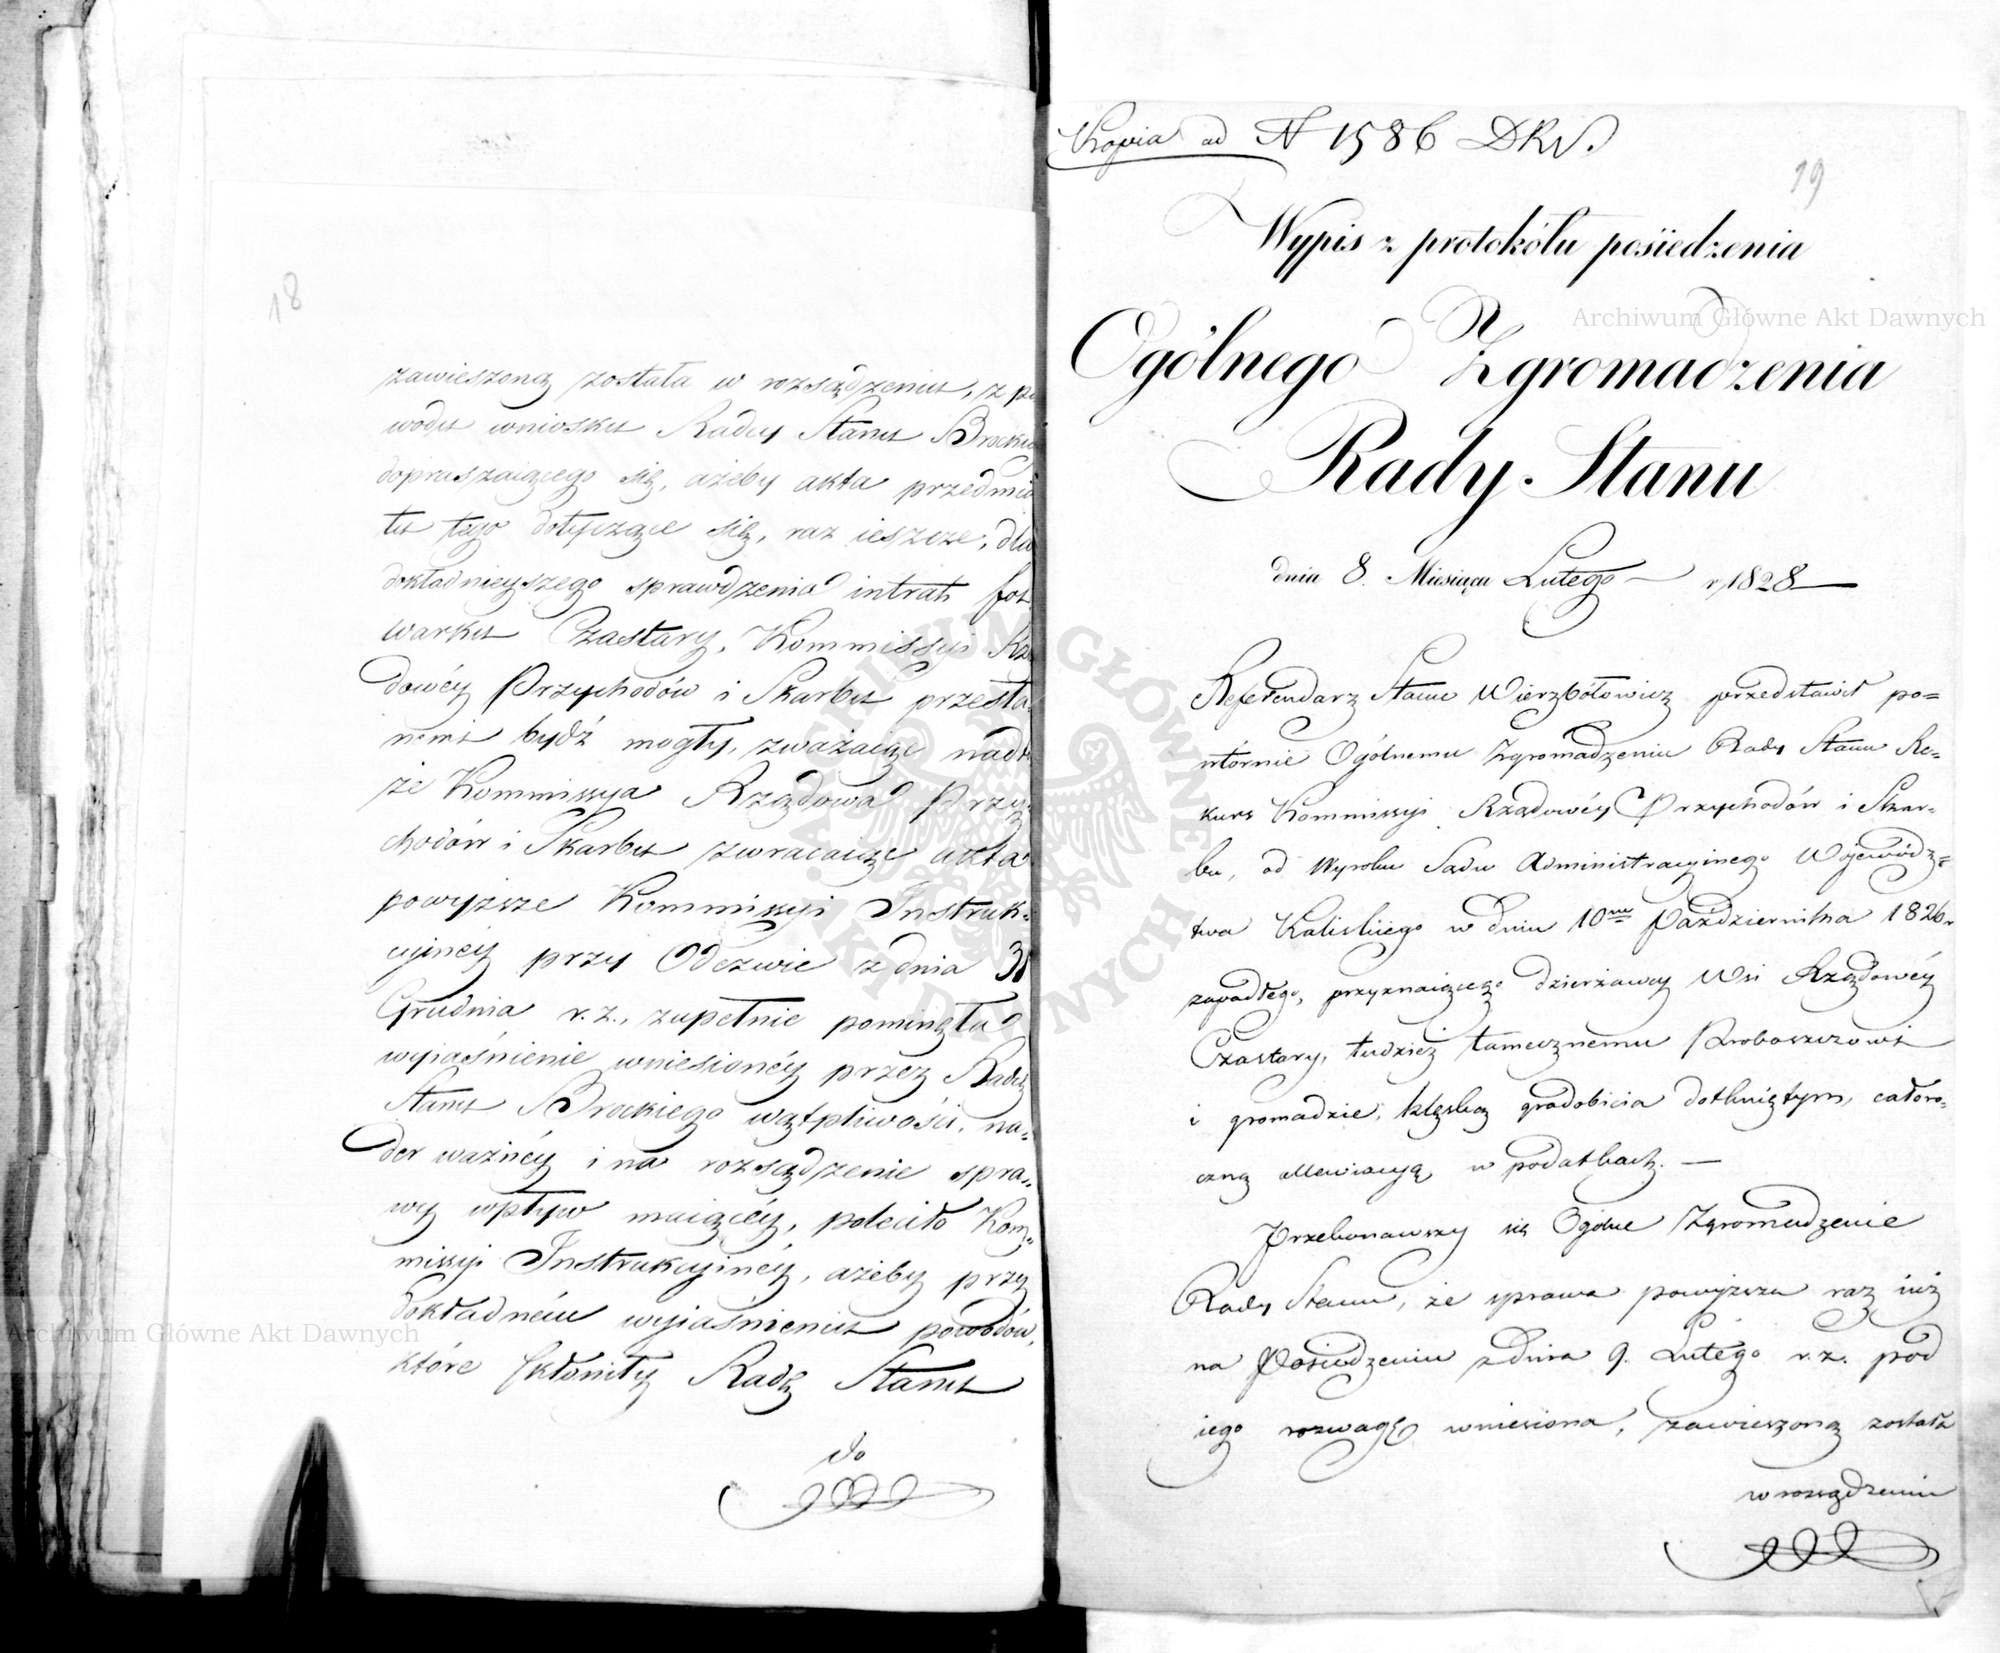 18
zawieszoną została w rozsądzeniu, z po
wodu wniosku Radcy Stanu Brockie
dopraszaiącego się, ażeby akta przedmio
tu tego dotyczące się, raz ieszcze, dla
dokładnieyszego sprawdzenia intrat fol
warku Czastary, Kommissyi Rzą
dowéy Przychodów i Skarbu przesła
nemi bydź mogły, zważaiąc nadto
że Kommissya Rządowa Przy
chodów i Skarbu zwracaiąc akta
powyższe Kommissyi Instruk-
cyinéy przy Odezwie z dnia 31
Grudnia r.z., zupełnie pominęła
wyiaśnienie wniesionéy przez Radcę
Stanu Brockiego wątpliwości, na-
der ważnéy i na rozsądzenie spra-
wy wpływ maiącéy, poleciło Kom-
missyi Instrukcyinéy, ażeby przy
dokładném wyiaśnieniu powodów,
które skłoniły Radę Stanu
do
Kopia ad N 1586 DRS.
19
Wypis z protokółu posiedzenia
Ogólnego Zgromadzenia
Rady Stanu
dnia 8. Miesiąca Lutego r. 1828
Referendarz Stanu Wierzbółowicz przedstawił po=
wtórnie Ogólnemu Zgromadzeniu Rady Stanu Re=
kurs Kommissyi Rządowéy Przychodów i Skar=
bu, od Wyroku Sądu Administracyinego Wojewódz=
twa Kaliskiego w dniu 10 Października 1826 r.
zapadłego, przyznaiącego dzierżawcy Wsi Rządowéy
Czastary, tudzież tamecznemu Proboszczowi
i gromadzie, klęską gradobicia dotkniętym, całoro=
czną allewiacyą w podatkach. —
Przekonawszy się Ogólne Zgromadzenie
Rady Stanu, że sprawa powyższa raz iuż
na Posiedzeniu z dnia 9. Lutego r. z. pod
iego rozwagę wniesiona, zawieszoną została
w rozsądzeniu
Archiwum Główne Akt Dawnych
Archiwum Główne Akt Dawnych
ARCHIWUM GŁÓWNE AKT DAWNYCH